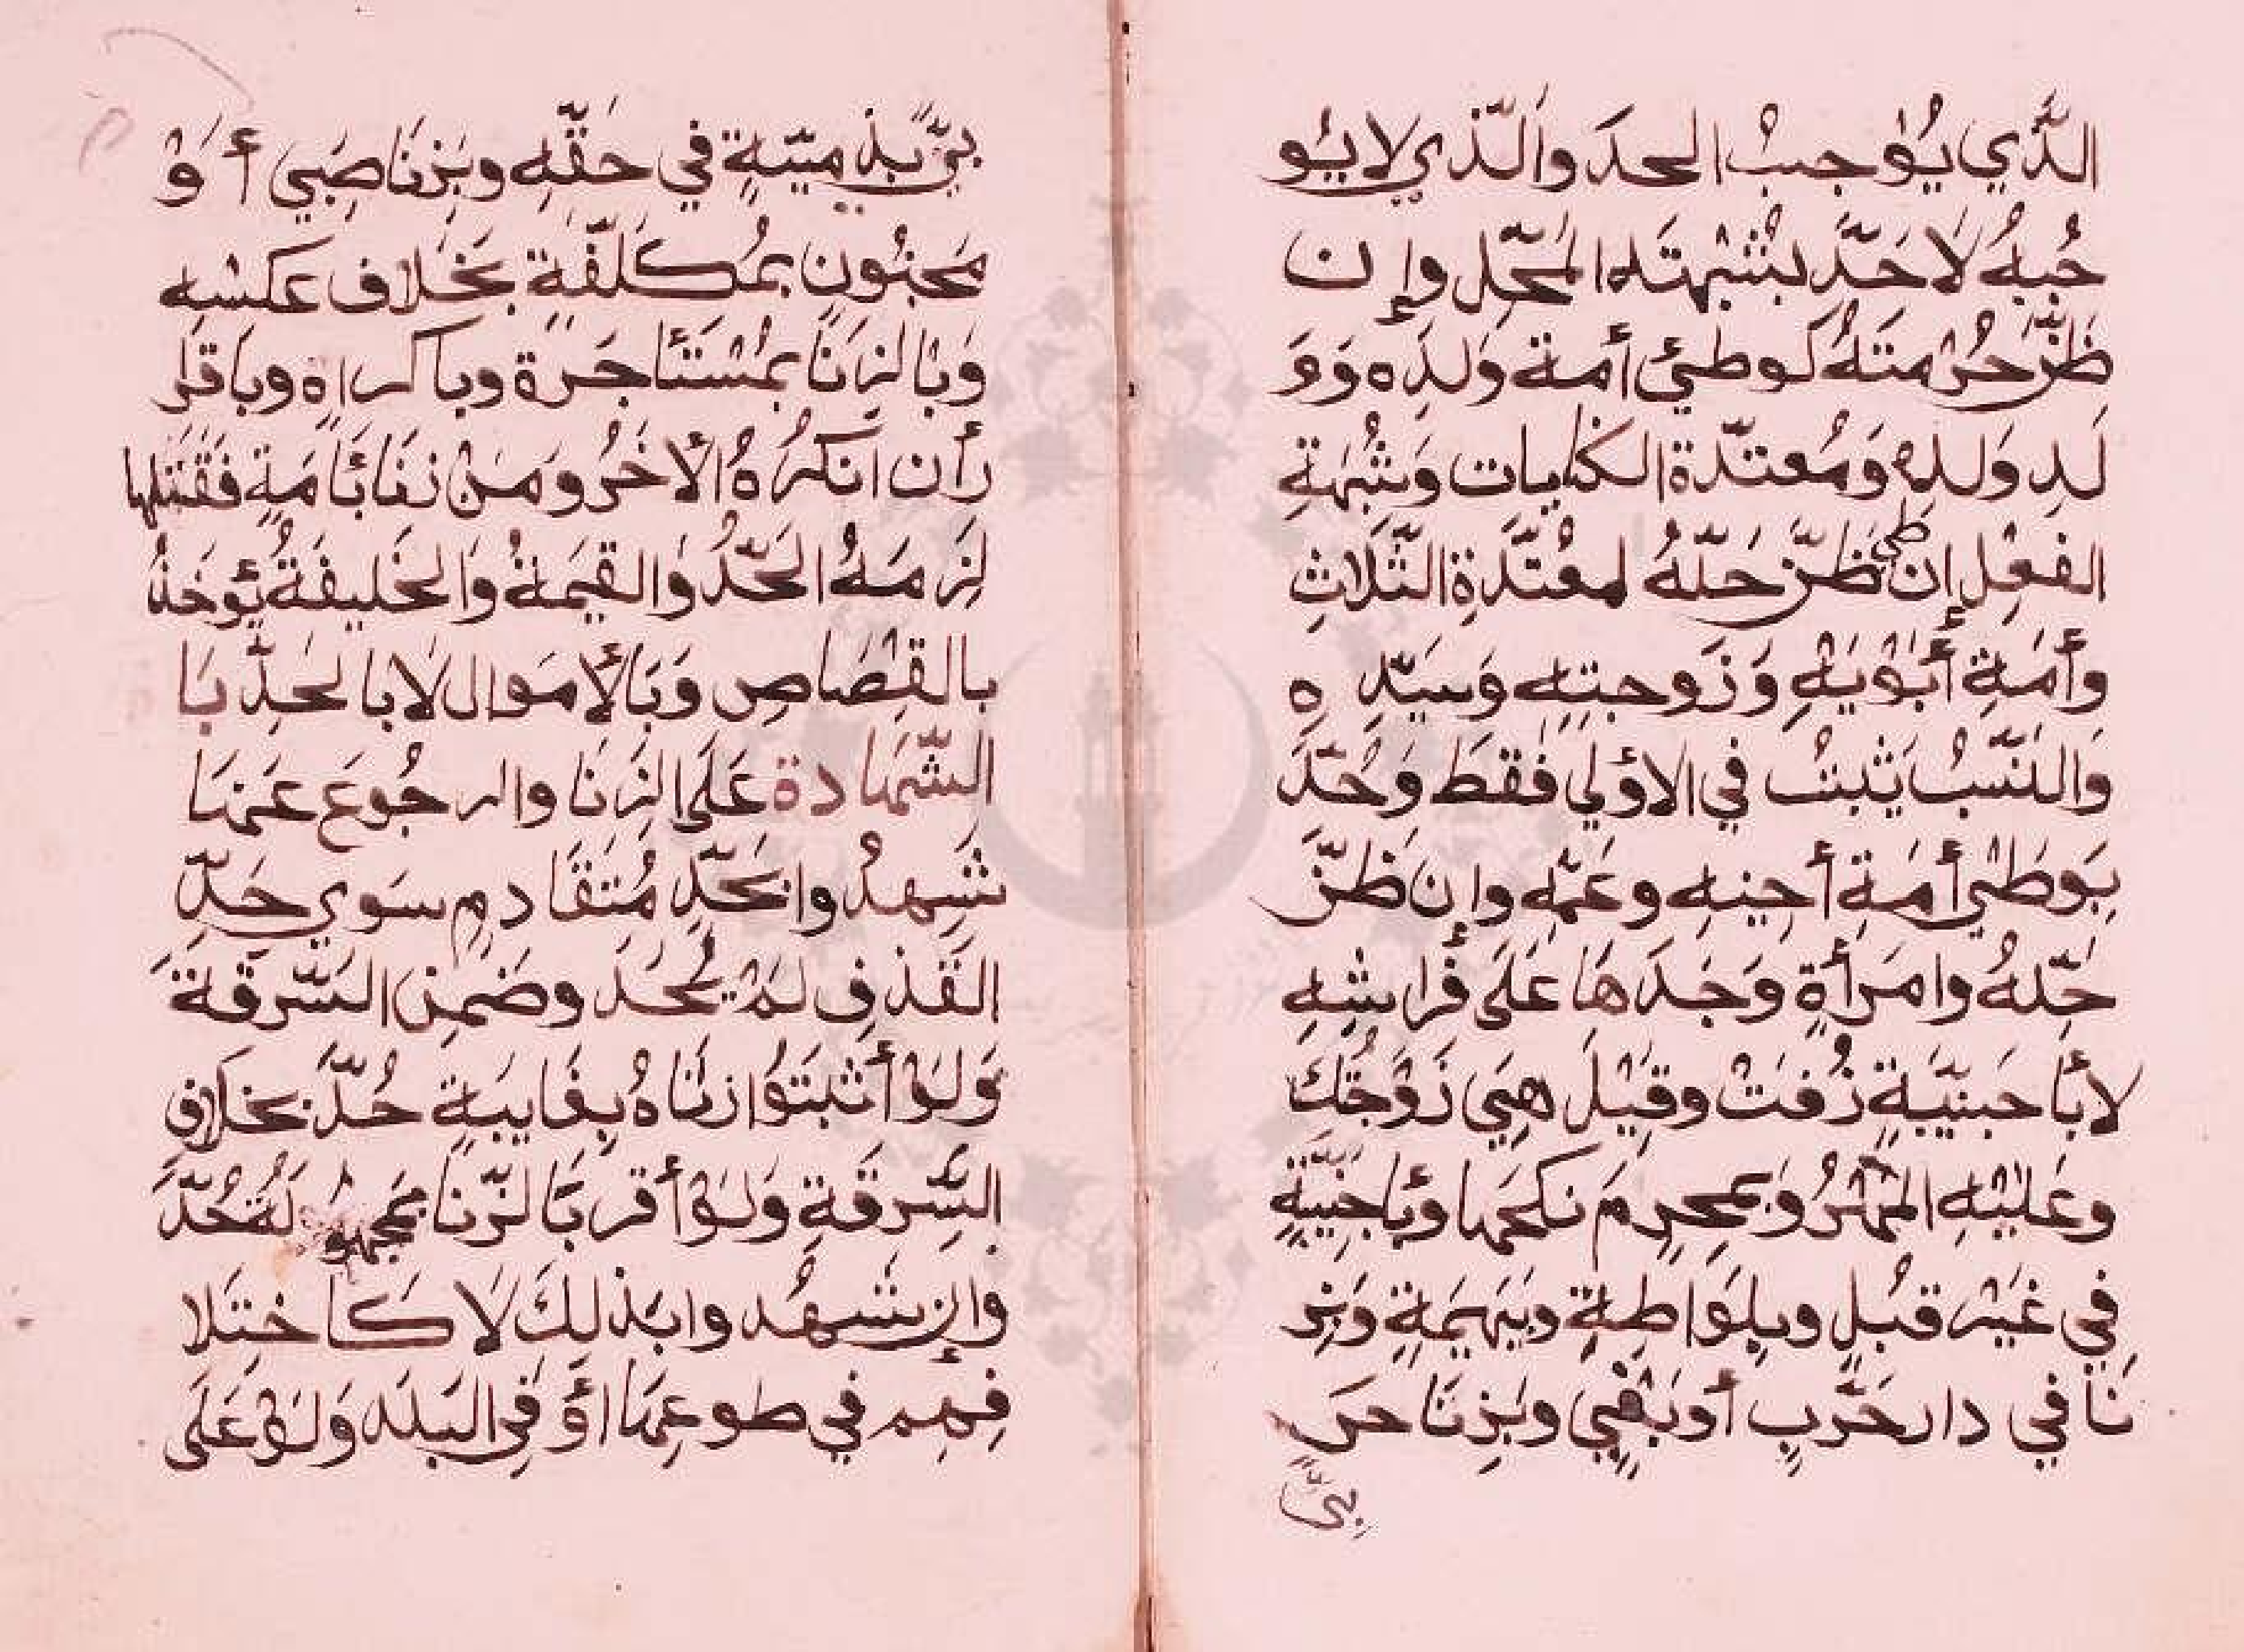 الَّذي يُوْجبُ الحدَ والَّذي لا يُو
جُبهُ لَا حَدَّ بشُبْهتَه المَحّل وإن
ظَنَّ حُرْمتَهُ كوطيْ أمة وَلدِه وَوَ
لَدِ وَلدِهِ وَمُعتدّة الكنايات وَشُبْهَةِ
الفعْل إن ظنَّ حَلّهُ لمعْتدَّةِ الثَّلَاثِ
وأَمَةِ أَبَوْيَهْ وَزَوجتِهِ وَسَيّدِ ه
وَالنَّسَبُ يَثْبتُ في الاؤلي فقطَ وَحُدَّ
بِوَطْيْ أمَةِ أخِيْهِ وعَمّهِ وإن ظنَّ
حِلّهُ وامرَأةٍ وَجَدَهَا عَلَى فُراشِهِ
لا بأَجَنبيَّةٍ زُفتْ وقِيْلَ هيَ زَوْجُتكَ
وعَليْهِ المَهْرُ وَبمحرِمَ نَكحَها وبأجنَبيّةٍ
في غيْر قبُلٍ وبلِوَاطةٍ وبَبَهيَمةٍ وَبزِ
نَا في دار حَرْبٍ أو بَغْيٍ وبَزِنَا حرَ
بيّ
بيّ بِذمِيّةٍ في حقّهِ وبَزِنَا صَبي أَ وْ
مَجنُونٍ بمُكَلّفَةٍ بخَلاف عكسْه
وَبْالزِنَا بمُسْتَأجَرة وباكراهٍ وباقرَا
رأن انكرُهُ الأخَرُ ومَنْ زنَا بأمَةٍ فقَتلها
لِزمَهُ الحَدُّ وَالقيَمةُ وَالخليفَةُ يُؤخَذُ
بالقِصَاصِ وَبَالأموَال لَا بالحَدِّ بَا
الشَّهَادة عَلَى الزِنَا والرجُوعَ عَنهَا
شَهِدُوا بحَدِّ مُتقَادمٍ سَوي حَدِّ
القَذفِ لمْ يُحَدَ وضَمِن السَّرقةَ
وَلوْ أثبتَوُا زنَاهُ بِغَايبَةٍ حُدَّ بخلافِ
السَّرقَةِ وَلوْ أقر بَالزّنَا بمَجهُولَةٍ حُدَّ
وَإن شهدُوا بذَلكَ لَا كَاختَلا
فِهِم في طوعِهَا أَوْ في البَلد وَلوْ عَلَى